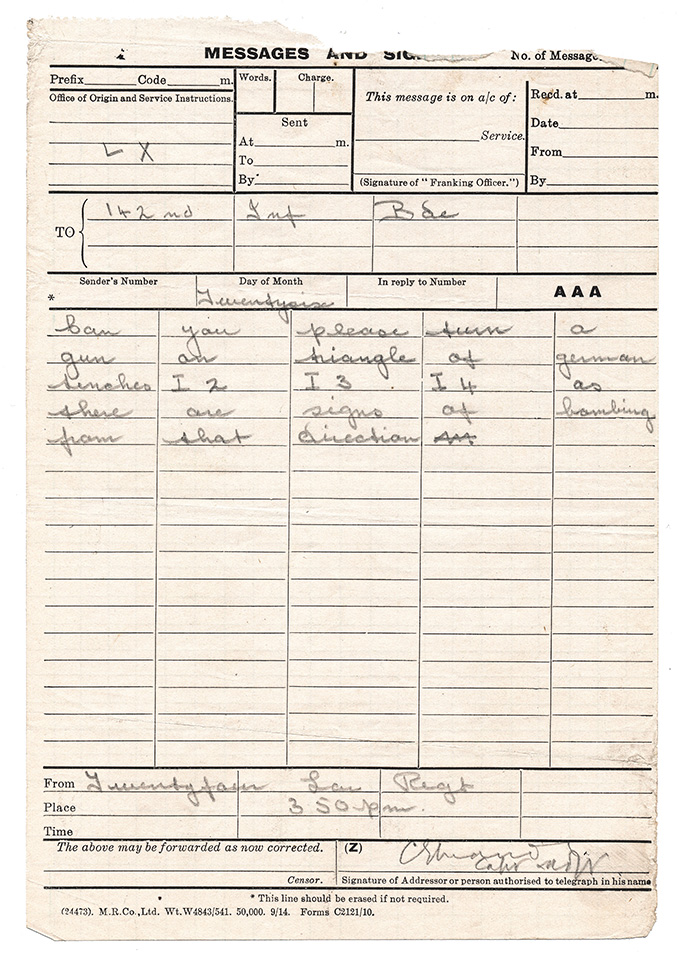 MESSAGES AND SIG No. of Message
Prefix Code m. Words. Charge. This message is on a/c of: Recd. at m.
Office of Origin and Service Instructions. Sent Date
L X At m. Service. From
To
By (Signature of "Franking Officer.") By
TO 142nd Inf Bde
Sender's Number Day of Month In reply to Number AAA
* Twentysix
Can you please turn a
gun on triangle of german
tenches I 2 I 3 I 4 as
there are signs of bombing
from that direction AAA
From Twentyfour Lon Regt
Place 3 50 pm.
Time
The above may be forwarded as now corrected. (Z)
Capt
Censor. Signature of Addressor or person authorised to telegraph in his name
* This line should be erased if not required.
(24473). M.R.Co.,Ltd. Wt.W4843/541. 50,000. 9/14. Forms C2121/10.